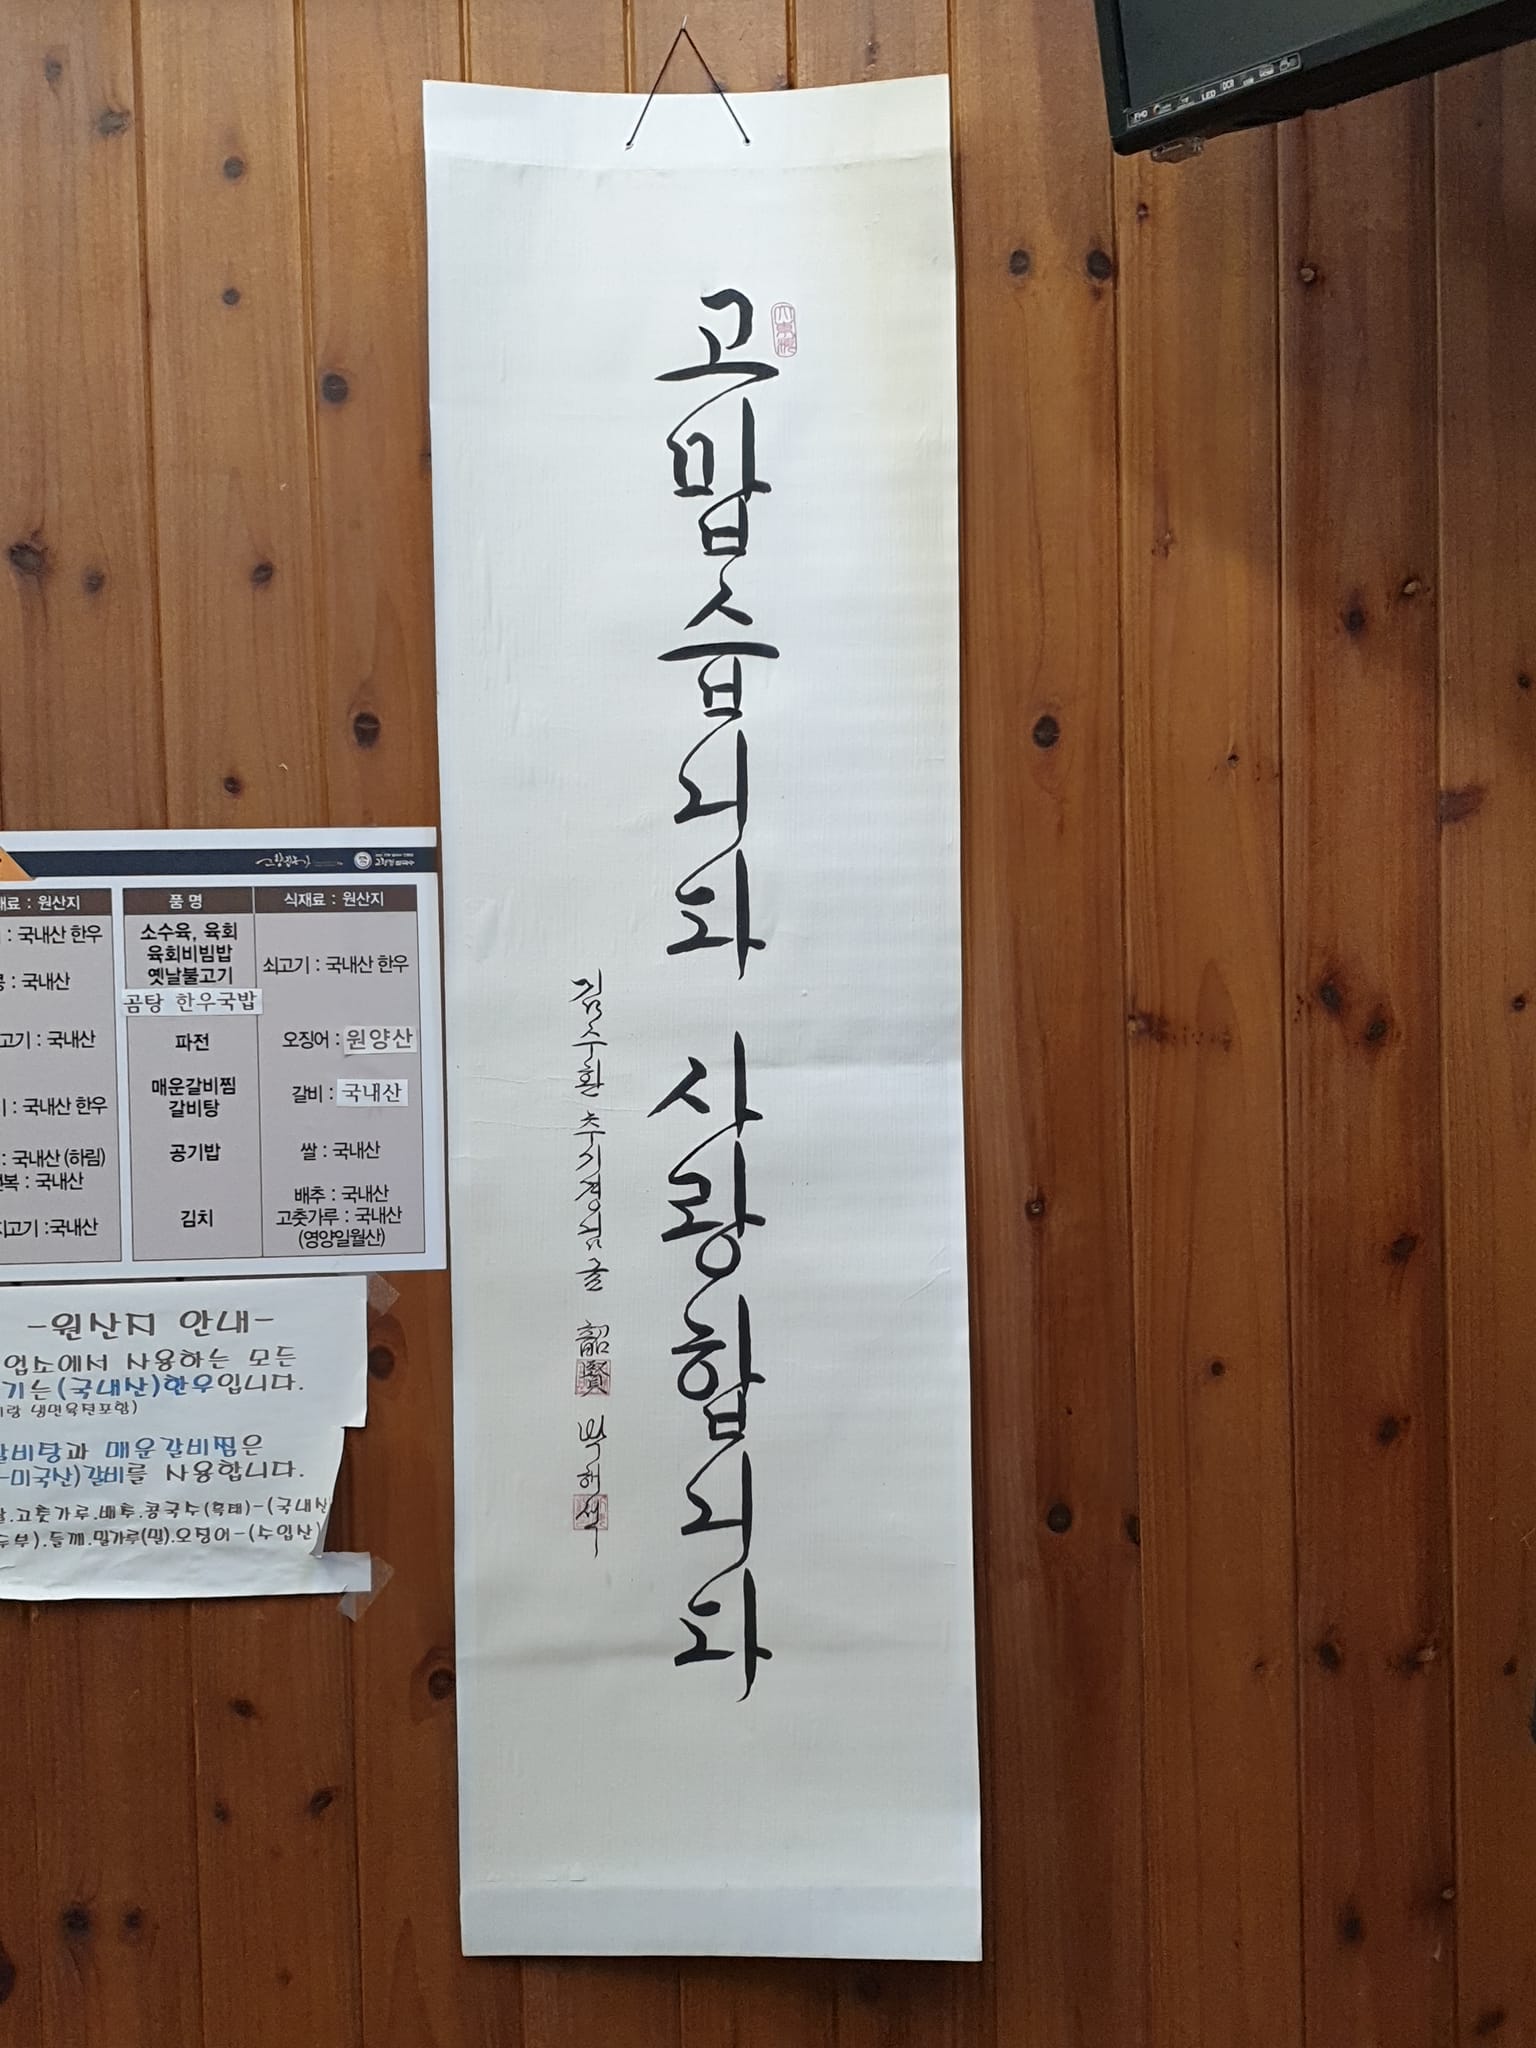 고맙습니다 사랑합니다
김수환 추기경님 글 韶賢 박해색
품명
식재료 : 원산지
소수육, 육회
육회비빔밥
옛날불고기
곰탕 한우국밥
쇠고기 : 국내산 한우
파전
오징어 : 원양산
매운갈비찜
갈비탕
갈비 : 국내산
공기밥
쌀 : 국내산
김치
배추 : 국내산
고춧가루 : 국내산
(영양일월산)
: 원산지
: 국내산 한우
: 국내산
고기 : 국내산
: 국내산 한우
: 국내산 (하림)
: 국내산
고기 : 국내산
-원산지 안내-
업소에서 사용하는 모든
기는 (국내산)한우입니다.
냉면육전포함)
갈비탕과 매운갈비찜은
-미국산)갈비를 사용합니다.
고춧가루.배추.콩국수(흑태)-(국내산
.들깨.밀가루(밀).오징어-(수입산)
FHD
LED